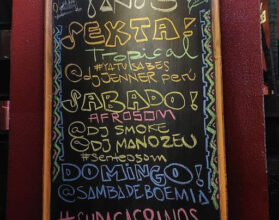 SEXTA!
Tropical
#YATUSABES
@djJENNER perú
SABADO!
AFROSOM
@DJ SMOKE
@DJ MANOZEU
#SenteoSom
DOMINGO!
@SAMBADEBOEMIA